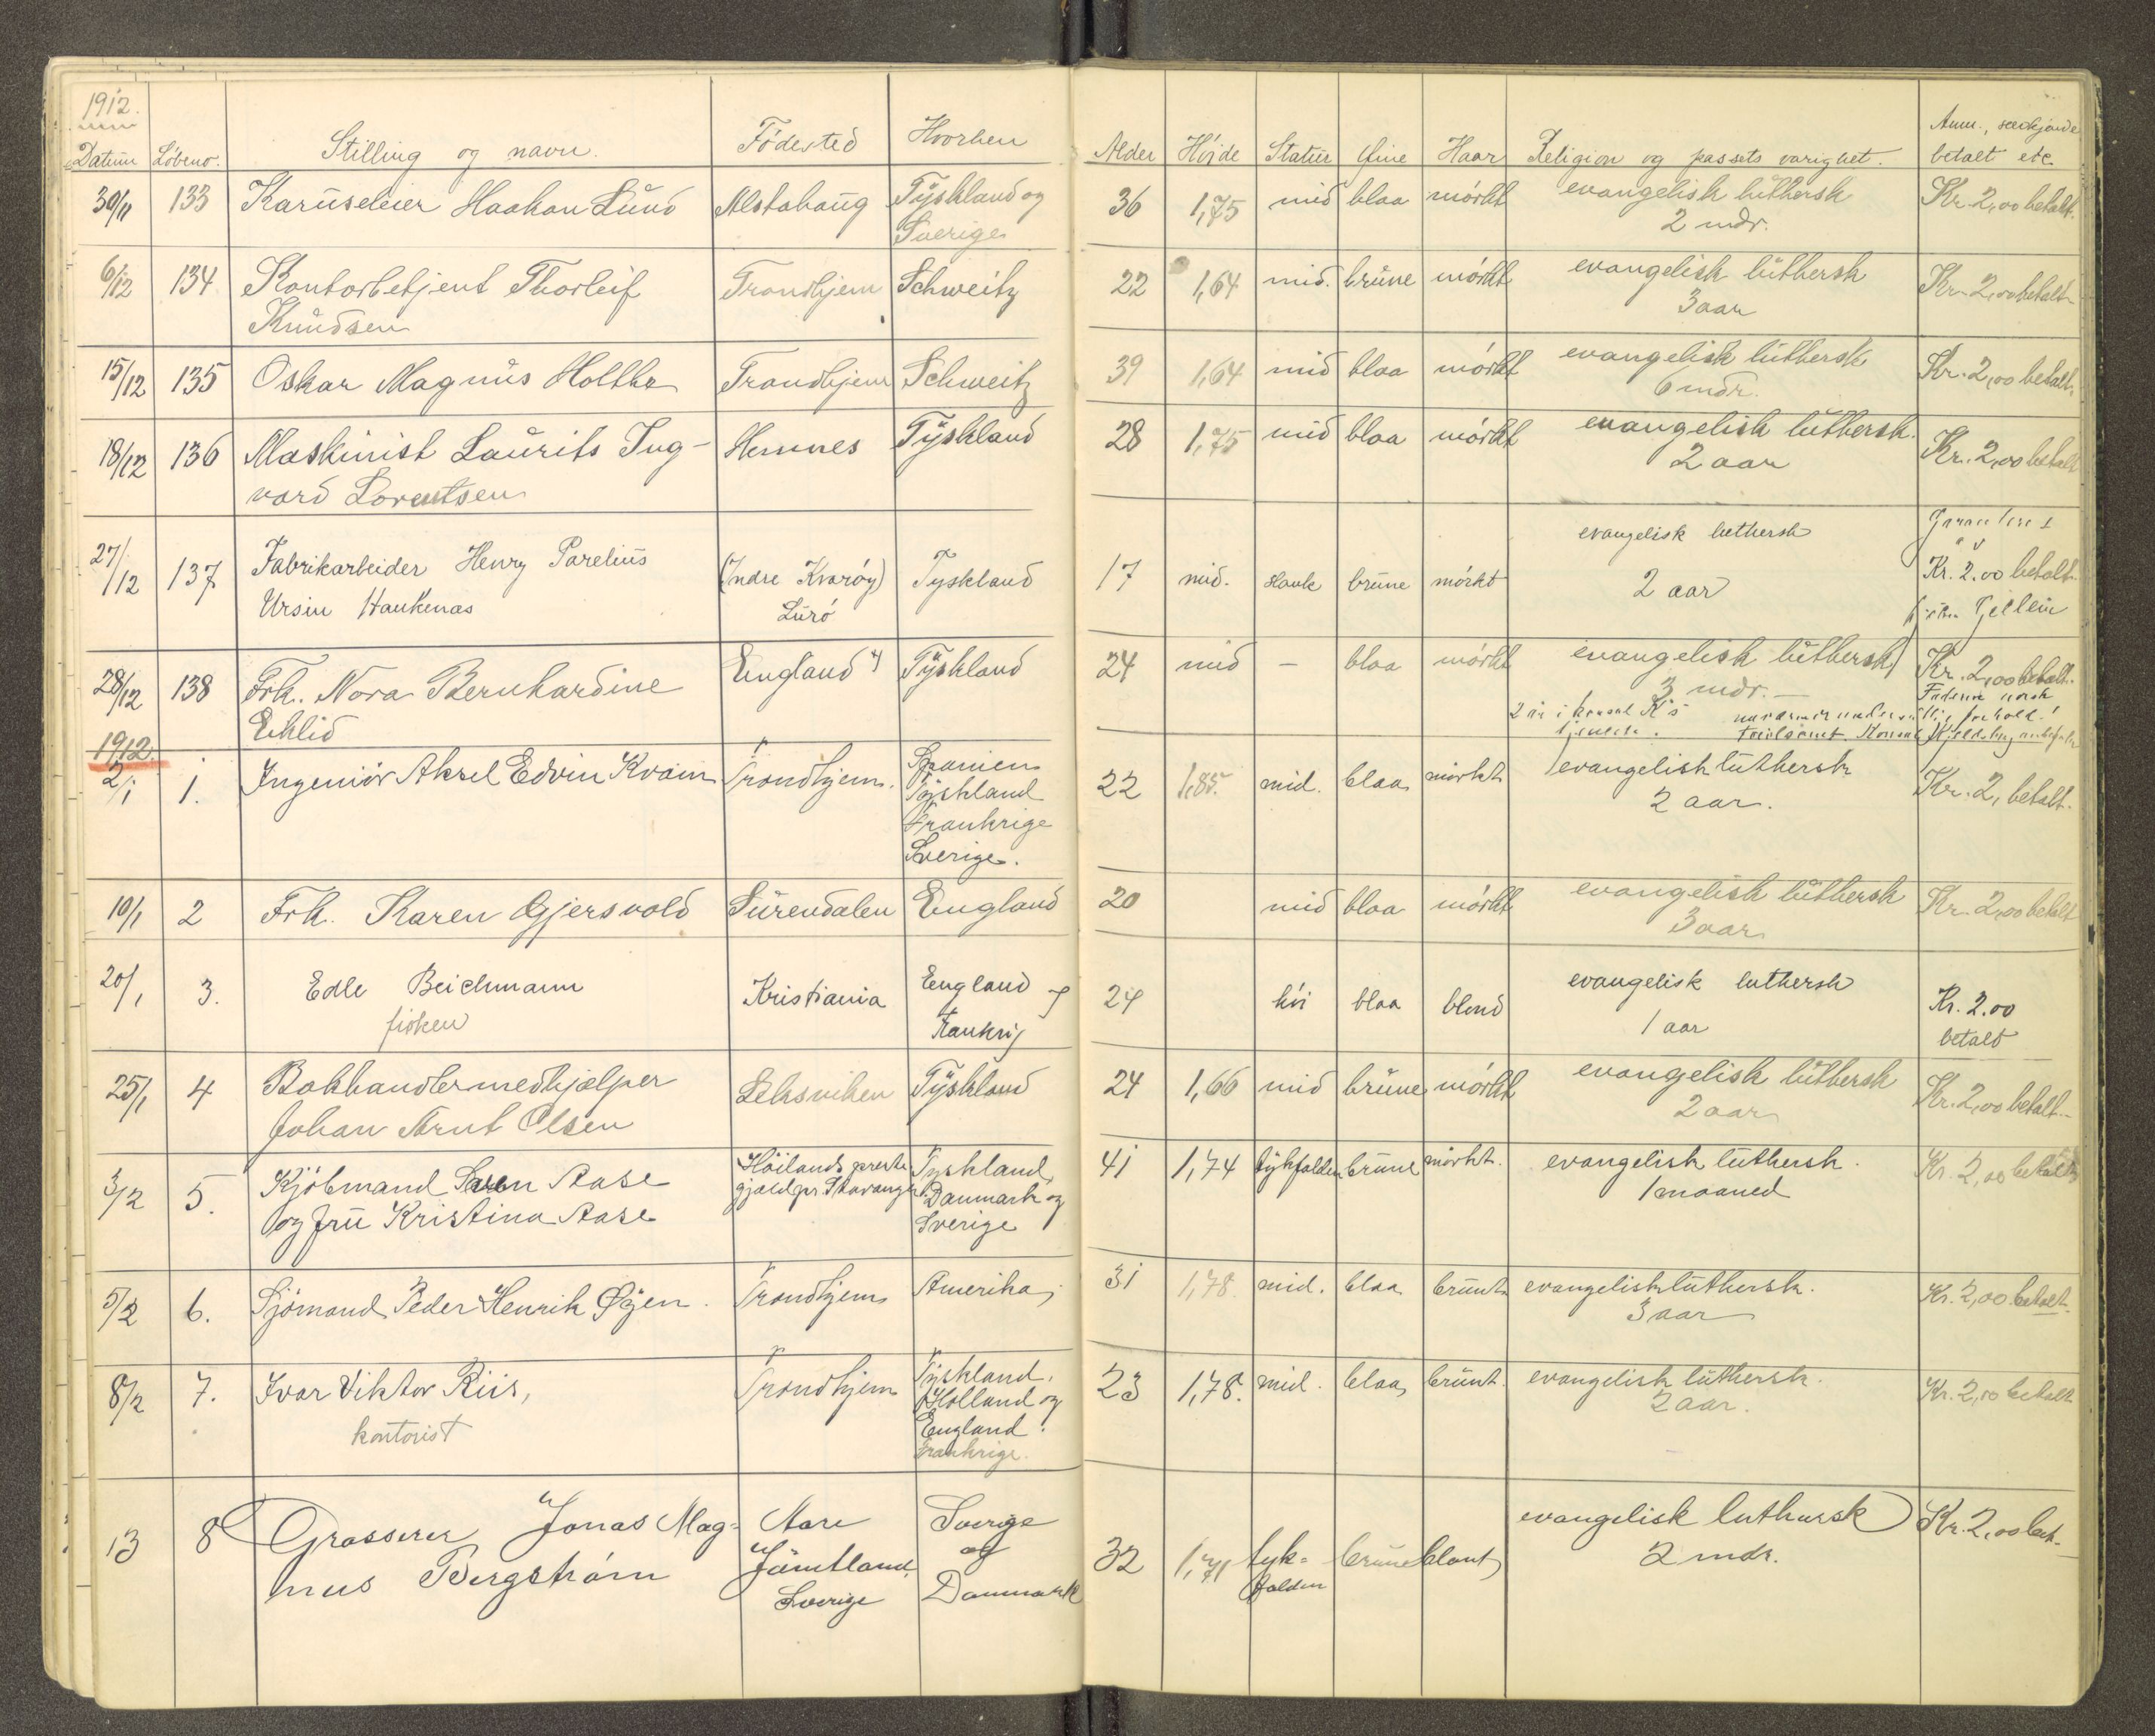 1912.
Datum Löbeno. Stilling og navn. Födested Hvorhen Alder Höide Statur Öine Haar Religion og passets varighet. Anm., betalt etc.
30/11 133 Karuseleier Haakon Lund Alstahaug Tyskland og 36 1,75 mid blaa mörkt evangelisk luthersk Kr. 2,00 betalt.
Sverige 2 mdr.
6/12 134 Kontorbetjent Thorleif Trondhjem Schweitz 22 1,64 mid. brune mörkt evangelisk luthersk Kr. 2,00 betalt
Knudsen 3 aar
15/12 135 Oskar Magnus Holthe Trondhjem Schweitz 39 1,64 mid blaa mörkt evangelisk luthersk Kr. 2,00 betalt.
6 mdr.
18/12 136 Maskinist Laurits Ing- Hemnes Tyskland 28 1,75 mid blaa mörkt evangelisk luthersk. Kr. 2,00 betalt
vard Lorentsen 2 aar
27/12 137 Fabrikarbeider Henry Parelius (Indre Kvaröy) Tyskland 17 mid. slank brune mörkt evangelisk luthersk Kr. 2.00 betalt
Ursin Haukenæs Lurö 2 aar
28/12 138 Frk. Nora Bernhardine England Tyskland 24 mid - blaa mörkt evangelisk luthersk Kr. 2,00 betalt.
Eklid 3 mdr. Faderen norsk
1912.
2/1 1. Ingeniör Aksel Edvin Kvam Trondhjem. Spanien 22 1,85. mid. blaa mörkt evangelisk luthersk Kr. 2, betalt.
Tyskland 2 aar.
Frankrige
Sverige.
10/1 2 Frk. Karen Gjersvold Surendalen England 20 mid blaa mörkt evangelisk luthersk Kr. 2,00 betalt
3 aar
20/1 3. Edle Beichmann Kristiania England 24 höi blaa blond evangelisk luthersk Kr. 2.00
fröken Frankrig 1 aar betalt
25/1 4 Bokhandlermedhjælper Leksviken Tyskland 24 1,66 mid brune mörkt evangelisk luthersk Kr. 2,00 betalt.
Johan Arnt Olsen 2 aar
3/2 5. Kjöbmand Sven Aase Höilands preste Tyskland, 41 1,74 tykfalden brune mörkt. evangelisk luthersk. Kr. 2,00 betalt
og fru Kristina Aase gjæld pr. Stavanger Danmark og 1 maaned
Sverige
5/2 6. Sjömand Peder Henrik Øyen. Trondhjem Amerika 31 1,78. mid. blaa brunt evangelisk luthersk. Kr. 2,00 betalt.
3 aar
8/2 7. Ivar Viktor Riis, Trondhjem Tyskland, 23 1,78. mid. blaa brunt. evangelisk luthersk. Kr. 2,00 betalt
kontorist Holland og 2 aar.
England.
Frankrige.
13 8 Grosserer Jonas Mag- Aare Sverige 32 1,71 tyk- brune blont evangelisk luthersk Kr. 2,00 bet.
nus Bergström Jämtland, og falden 2 mdr.
Sverige Danmark